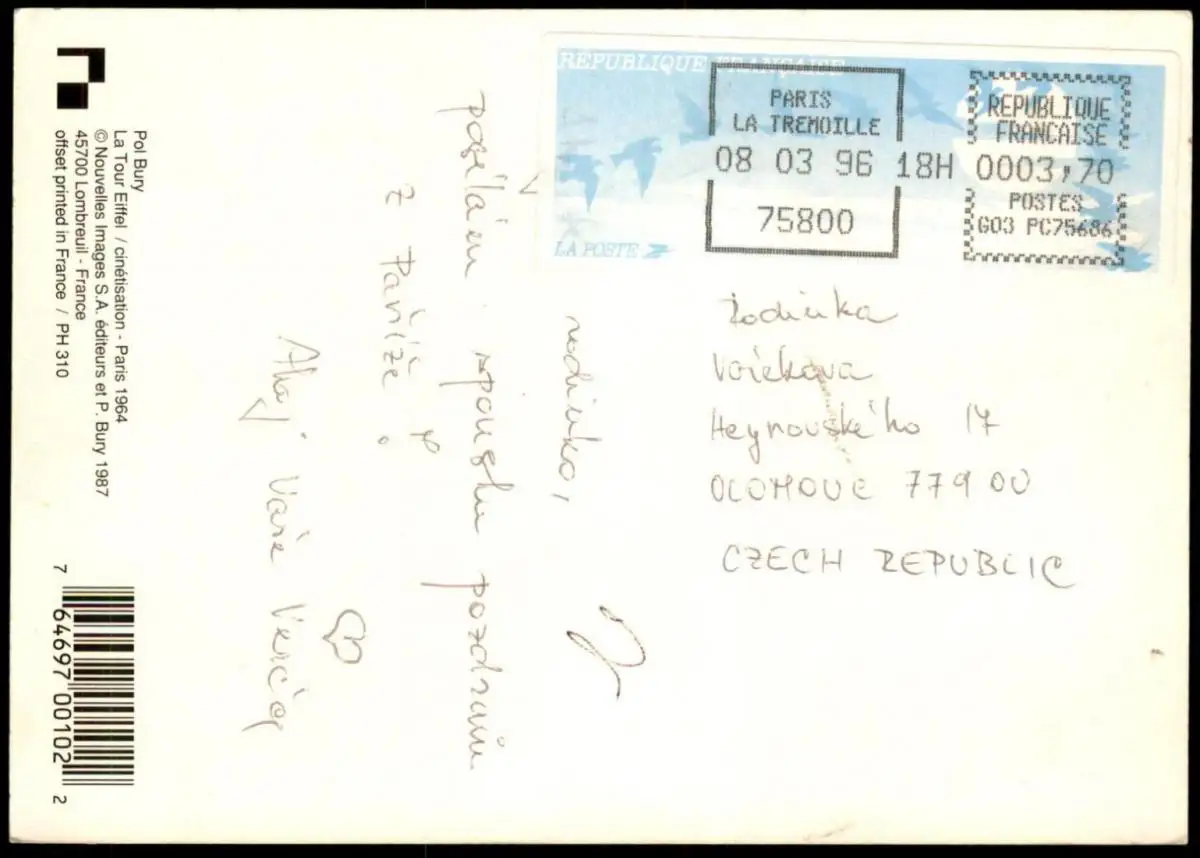 Pol Bury
La Tour Eiffel / cinétisation - Paris 1964
© Nouvelles Images S.A. éditeurs et P. Bury 1987
45700 Lombreuil - France
offset printed in France / PH 310
7 64697 00102 2
RÉPUBLIQUE FRANÇAISE
LA POSTE
PARIS
LA TREMOILLE
08 03 96 18H
75800
REPUBLIQUE
FRANCAISE
0003,70
POSTES
G03 PC75686
rodinko,
pozdravu
z Paříže!
Ahoj Vaše
Rodinka
Heynovského 17
OLOMOUC 779 00
CZECH REPUBLIC